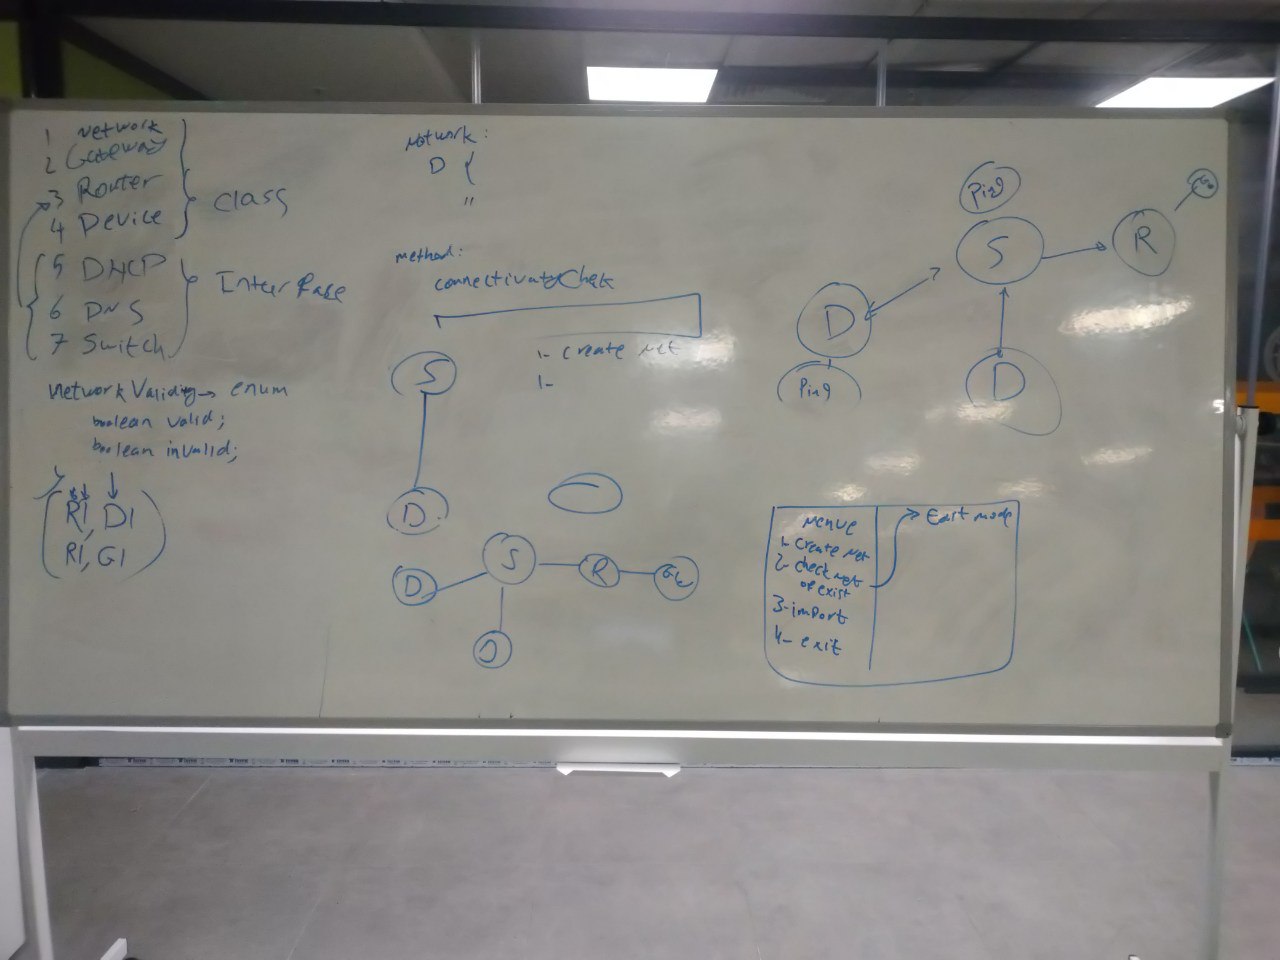 1 Network
2 Gateway
3 Router
4 Device
class
5 DHCP
6 DNS
7 Switch
InterFace
Network Validing → enum
boolean valid;
boolean invalid;
R1, D1
R1, G1
Network:
D {
"
method:
connectivatyChek
1- create net
1-
S
D
S
D
R
D
Ping
S
R
D
Ping
D
Menue
1- create net
2- check net
of exist
3- import
4- exit
→ Edit mode